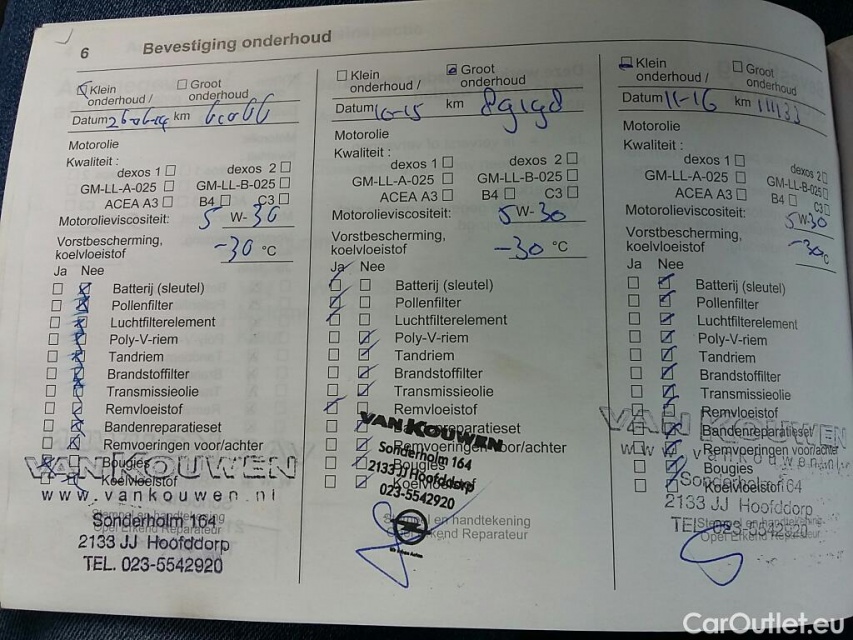 6 Bevestiging onderhoud
Klein onderhoud / Groot onderhoud
Datum km
Motorolie
Kwaliteit :
dexos 1 dexos 2
GM-LL-A-025 GM-LL-B-025
ACEA A3 B4 C3
Motorolieviscositeit: 5 W-30
Vorstbescherming,
koelvloeistof -30 °C
Ja Nee
Batterij (sleutel)
Pollenfilter
Luchtfilterelement
Poly-V-riem
Tandriem
Brandstoffilter
Transmissieolie
Remvloeistof
Bandenreparatieset
Remvoeringen voor/achter
Bougies
Koelvloeistof
VAN KOUWEN
www.vankouwen.nl
Stempel en handtekening
Opel Erkend Reparateur
Sonderholm 164
2133 JJ Hoofddorp
TEL. 023-5542920
Klein onderhoud / Groot onderhoud
Datum 10-15 km
Motorolie
Kwaliteit :
dexos 1 dexos 2
GM-LL-A-025 GM-LL-B-025
ACEA A3 B4 C3
Motorolieviscositeit: 5W-30
Vorstbescherming,
koelvloeistof -30 °C
Ja Nee
Batterij (sleutel)
Pollenfilter
Luchtfilterelement
Poly-V-riem
Tandriem
Brandstoffilter
Transmissieolie
Remvloeistof
Bandenreparatieset
Remvoeringen voor/achter
Bougies
Koelvloeistof
VAN KOUWEN
Sonderholm 164
2133 JJ Hoofddorp
023-5542920
Stempel en handtekening
Opel Erkend Reparateur
Klein onderhoud / Groot onderhoud
Datum 11-16 km 111133
Motorolie
Kwaliteit :
dexos 1 dexos 2
GM-LL-A-025 GM-LL-B-025
ACEA A3 B4 C3
Motorolieviscositeit: 5W-30
Vorstbescherming,
koelvloeistof -30 °C
Ja Nee
Batterij (sleutel)
Pollenfilter
Luchtfilterelement
Poly-V-riem
Tandriem
Brandstoffilter
Transmissieolie
Remvloeistof
Bandenreparatieset
Remvoeringen voor/achter
Bougies
Koelvloeistof
VAN KOUWEN
www.vankouwen.nl
Sonderholm 164
2133 JJ Hoofddorp
TEL. 023-5542920
Stempel en handtekening
Opel Erkend Reparateur
CarOutlet.eu